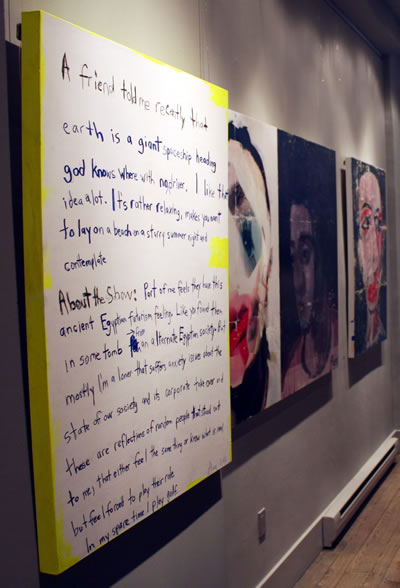 A friend told me recently that
earth is a giant spaceship heading
god knows where with no driver. I like the
idea alot. It's rather relaxing, makes you want
to lay on a beach on a starry summer night and
contemplate
About the Show: Part of me feels they have this
ancient Egyptian futurism feeling. Like you found them
in some tomb from an alternate Egyptian society. But
mostly I'm a loner that suffers anxiety issues about the
state of our society and its corporate take over and
these are reflections of random people that stood out
to me, that either feel the same thing or know what is
but feel forced to play their role
In my spare time I play golf.